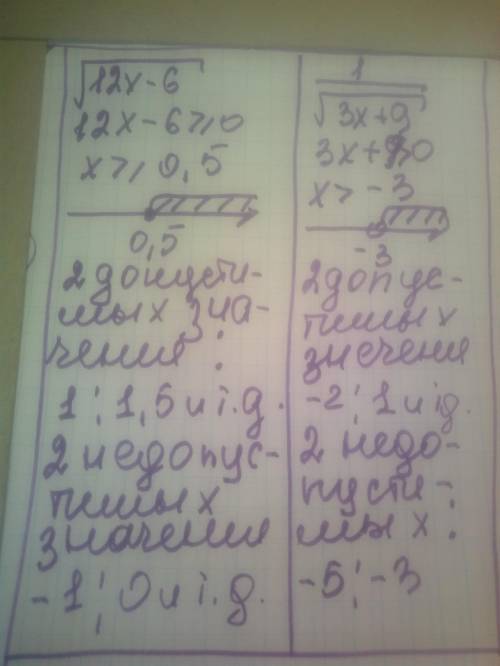 √12x-6
12x-6⩾0
x⩾0,5
0,5
2 допусти-
мых зна-
чения :
1 ; 1,5 и і.д.
2 недопус-
тимых
значения
-1 ; 0 и і.д.
1
√3x+9
3x+9>0
x>-3
-3
2 допус-
тимых
значеня
-2 ; 1 и ід.
2 недо-
пусти-
мых :
-5 ; -3